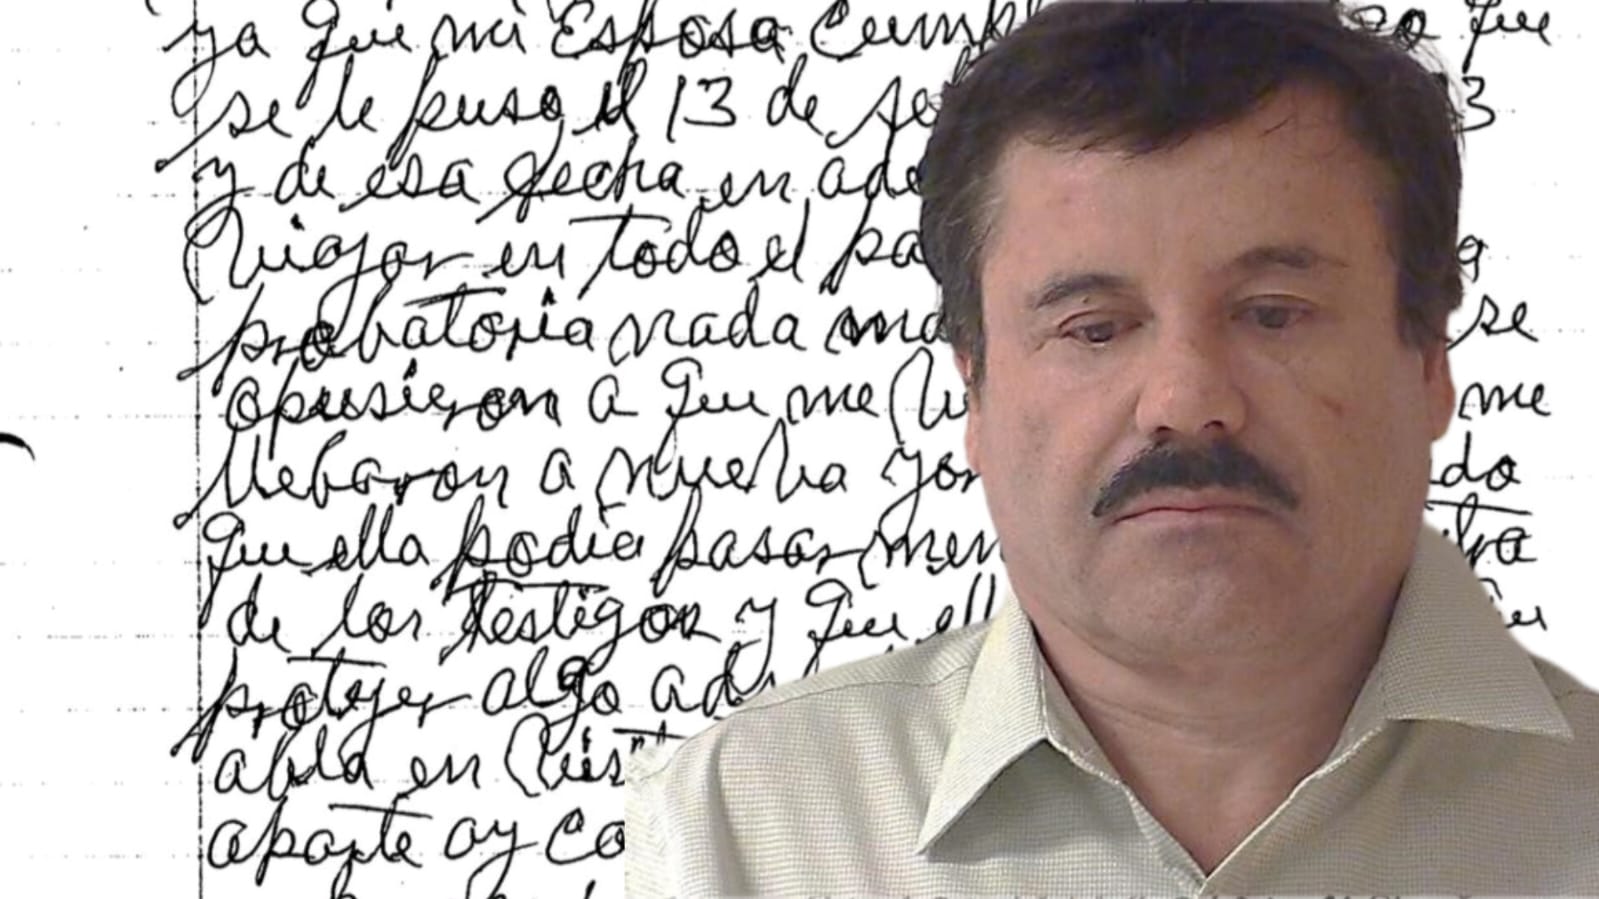 ya que mi Esposa Cumpl que
se le puso el 13 de se 3
y de esa fecha en ade
Viajar en todo el pa a
probatoria nada ma se
opusieron a que me me
llebaron a nueba yor do
que ella podia pasar men tra
de los testigos y que ell
protejer algo ad
abla en
aparte ay co